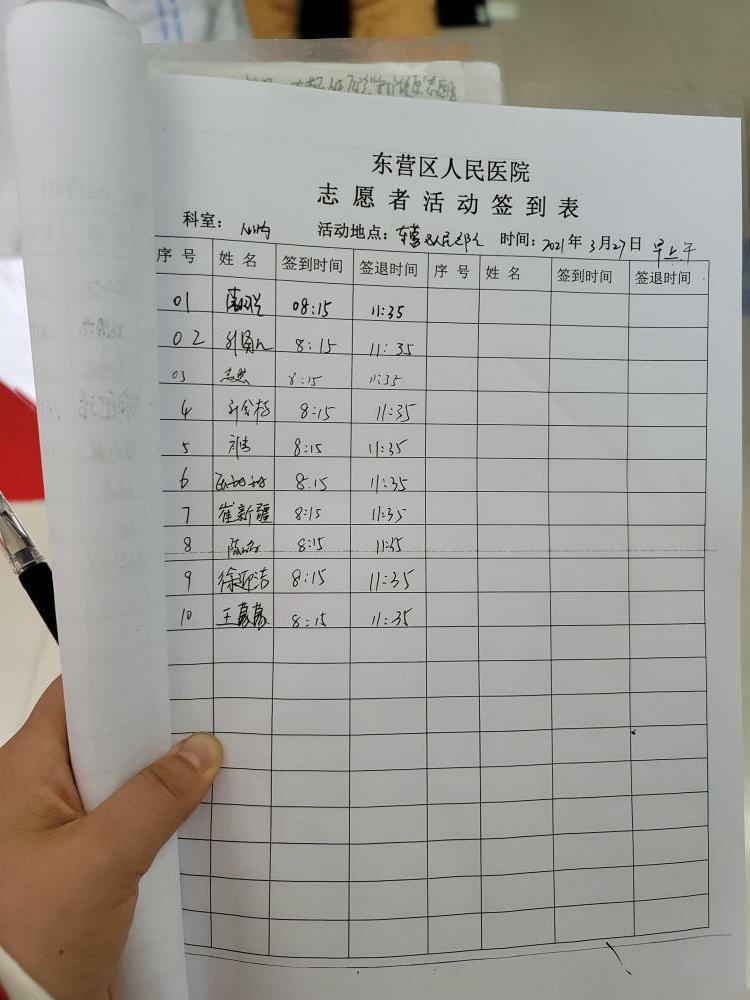 东营区人民医院
志愿者活动签到表
科室: 心内 活动地点: 东营区人民医院 时间: 2021年3月27日 早上午
序号 姓名 签到时间 签退时间 序号 姓名 签到时间 签退时间
01 08:15 11:35
02 8:15 11:35
03 8:15 11:35
4 8:15 11:35
5 8:15 11:35
6 8:15 11:35
7 崔新疆 8:15 11:35
8 8:15 11:35
9 徐迎洁 8:15 11:35
10 王蒙蒙 8:15 11:35